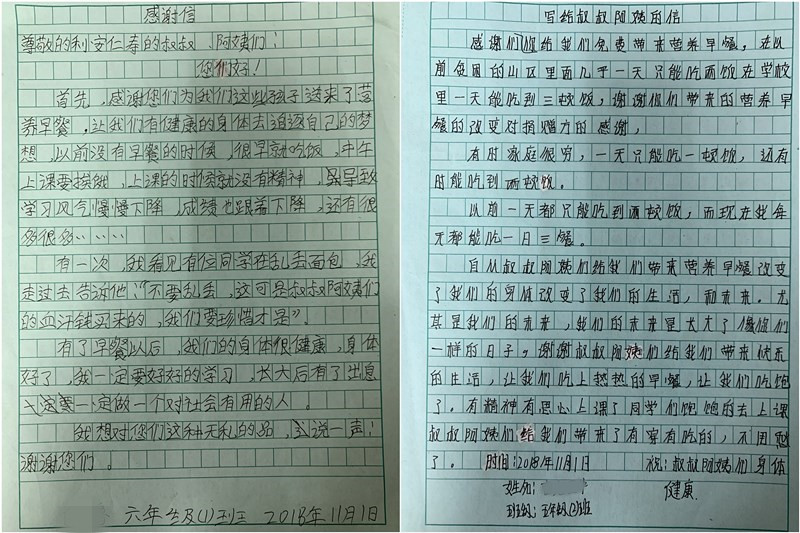 感谢信
尊敬的利安仁寿的叔叔、阿姨们：
您们好！
首先，感谢您们为我们这些孩子送来了营
养早餐，让我们有健康的身体去追逐自己的梦
想，以前没有早餐的时候，很早就吃饭，中午
上课要挨饿，上课的时候就没有精神，导致
学习风气慢慢下降，成绩也跟着下降，还有很
多很多……
有一次，我看见有位同学在乱丢面包，我
走过去告诉他："不要乱丢，这可是叔叔阿姨们
的血汗钱买来的，我们要珍惜才是"。
有了早餐以后，我们的身体很健康，身体
好了，我一定要好好的学习，长大后有了出息
一定要一定做一个对社会有用的人。
我想对您们这种无私的品，说一声：
谢谢您们。
六年级(1)班 2018年11月1日
写给叔叔阿姨的信
感谢们你给我们免费带来营养早餐，在以
前贫困的山区里面几乎一天只能吃两饭在学校
里一天能吃到三顿饭，谢谢你们带来的营养早
餐的改变对捐赠方的感谢，
有时家庭很穷，一天只能吃一顿饭，还有
时能吃到两顿饭。
以前一天都只能吃到两顿饭，而现在我每
天都能吃一日三餐。
自从叔叔阿姨们给我们带来营养早餐改变
了我们的身体改变了我们的生活，和未来。尤
其是我们的未来，我们的未来是长大了像你们
一样的日子。谢谢叔叔阿姨们给我们带来快乐
的生活，让我们吃上热热的早餐，让我们吃饱
了。有精神有思心上课了同学们饱饱的去上课
叔叔阿姨们给我们带来了有穿有吃的，不用愁
了。 时间：2018年11月1 祝：叔叔阿姨们身体
姓名： 健康
班级：五年级(2)班